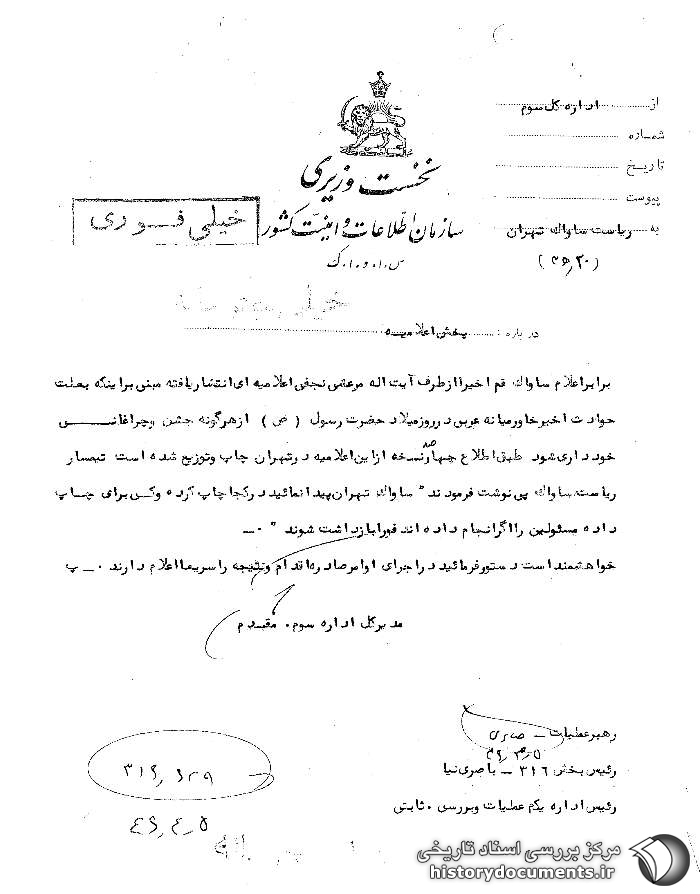 از اداره کل سوم
شماره
تاریخ
پیوست
به ریاست ساواک تهران
(۲۰ه۳)
نخست وزیری
سازمان اطلاعات و امنیت کشور
س.ا.و.ا.ک
خیلی فوری
خیلی
در باره : پخش اعلامیه
برابر اعلام ساواک قم اخیرا از طرف آیت اله مرعشی نجفی اعلامیه ای انتشار یافته مبنی بر اینکه بعلت
حوادث اخیر خاورمیانه عربی در روز میلاد حضرت رسول (ص) از هرگونه جشن و چراغانی
خود داری شود طبق اطلاع چهار صد نسخه از این اعلامیه در تهران چاپ و توزیع شده است تیمسار
ریاست ساواک پی نوشت فرمودند " ساواک تهران پیدا نمائید در کجا چاپ کرده و کی برای چاپ
داده مسئولین را اگر انجام داده اند فورا بازداشت شوند " ۰ــ
خواهشمند است دستور فرمائید در اجرای اوامر صادره اقدام و نتیجه را سریعا اعلام دارند ۰ــ پ
مدیر کل اداره سوم . مقدم
رهبر عملیات ــ صابری
رئیس بخش ۳۱۶ ــ باصری نیا
رئیس اداره یکم عملیات و بررسی . ثابتی
۳۱۶٫۶۲۹
۴۶٫۴٫۵
مرکز بررسی اسناد تاریخی
historydocuments.ir